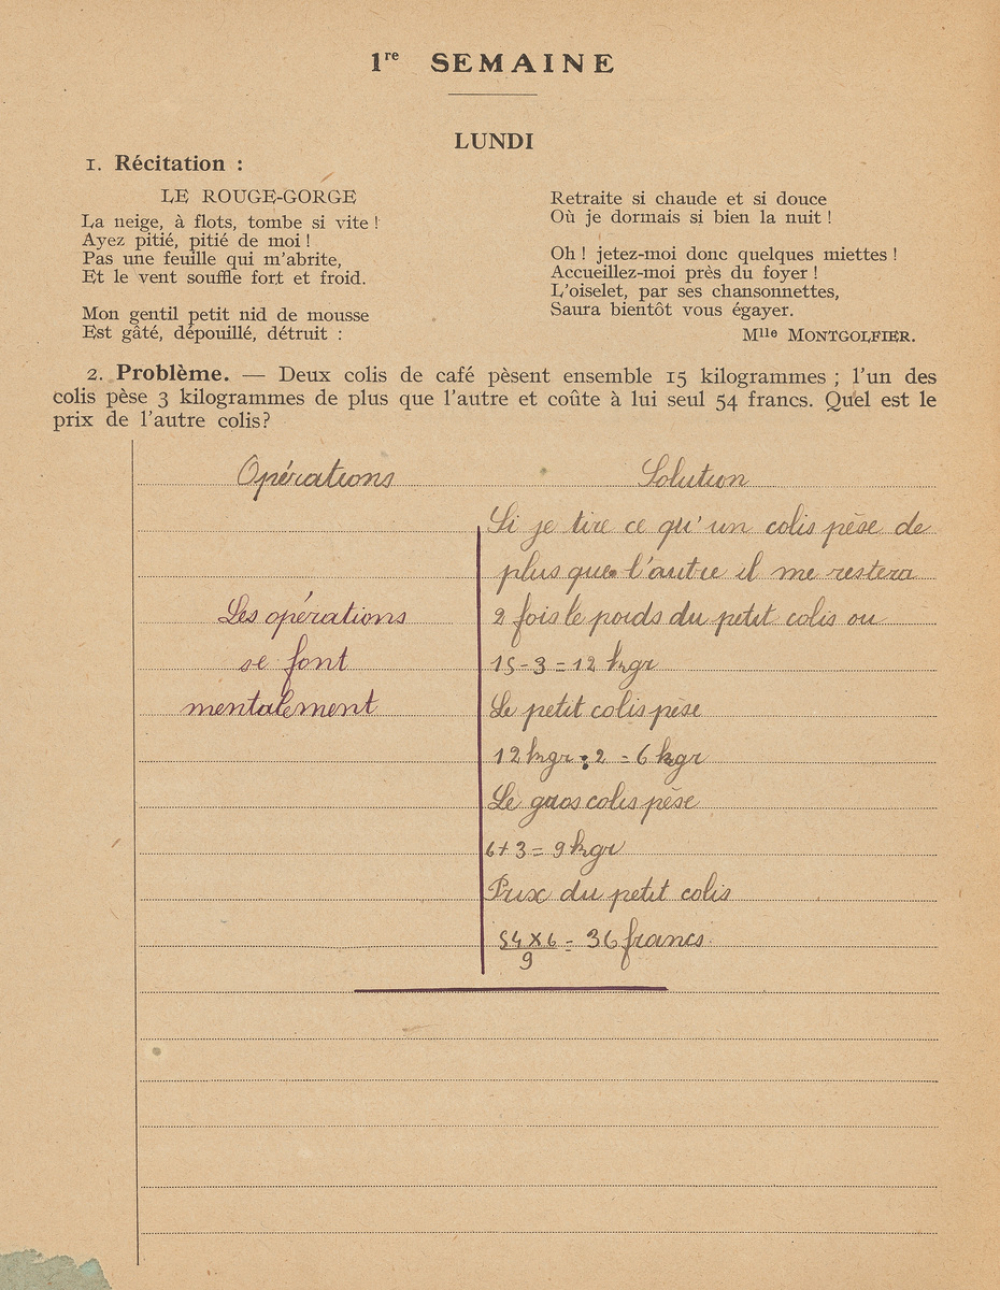 1re SEMAINE
LUNDI
1. Récitation :
LE ROUGE-GORGE
La neige, à flots, tombe si vite !
Ayez pitié, pitié de moi !
Pas une feuille qui m'abrite,
Et le vent souffle fort et froid.
Mon gentil petit nid de mousse
Est gâté, dépouillé, détruit :
Retraite si chaude et si douce
Où je dormais si bien la nuit !
Oh ! jetez-moi donc quelques miettes !
Accueillez-moi près du foyer !
L'oiselet, par ses chansonnettes,
Saura bientôt vous égayer.
Mlle MONTGOLFIER.
2. Problème. — Deux colis de café pèsent ensemble 15 kilogrammes ; l'un des
colis pèse 3 kilogrammes de plus que l'autre et coûte à lui seul 54 francs. Quel est le
prix de l'autre colis?
Opérations
Les opérations
se font
mentalement
Solution
Si je tire ce qu'un colis pèse de
plus que l'autre il me restera
2 fois le poids du petit colis ou
15 - 3 = 12 kgr
Le petit colis pèse
12 kgr : 2 = 6 kgr
Le gros colis pèse
6 + 3 = 9 kgr
Prix du petit colis
54 x 6 = 36 francs
9